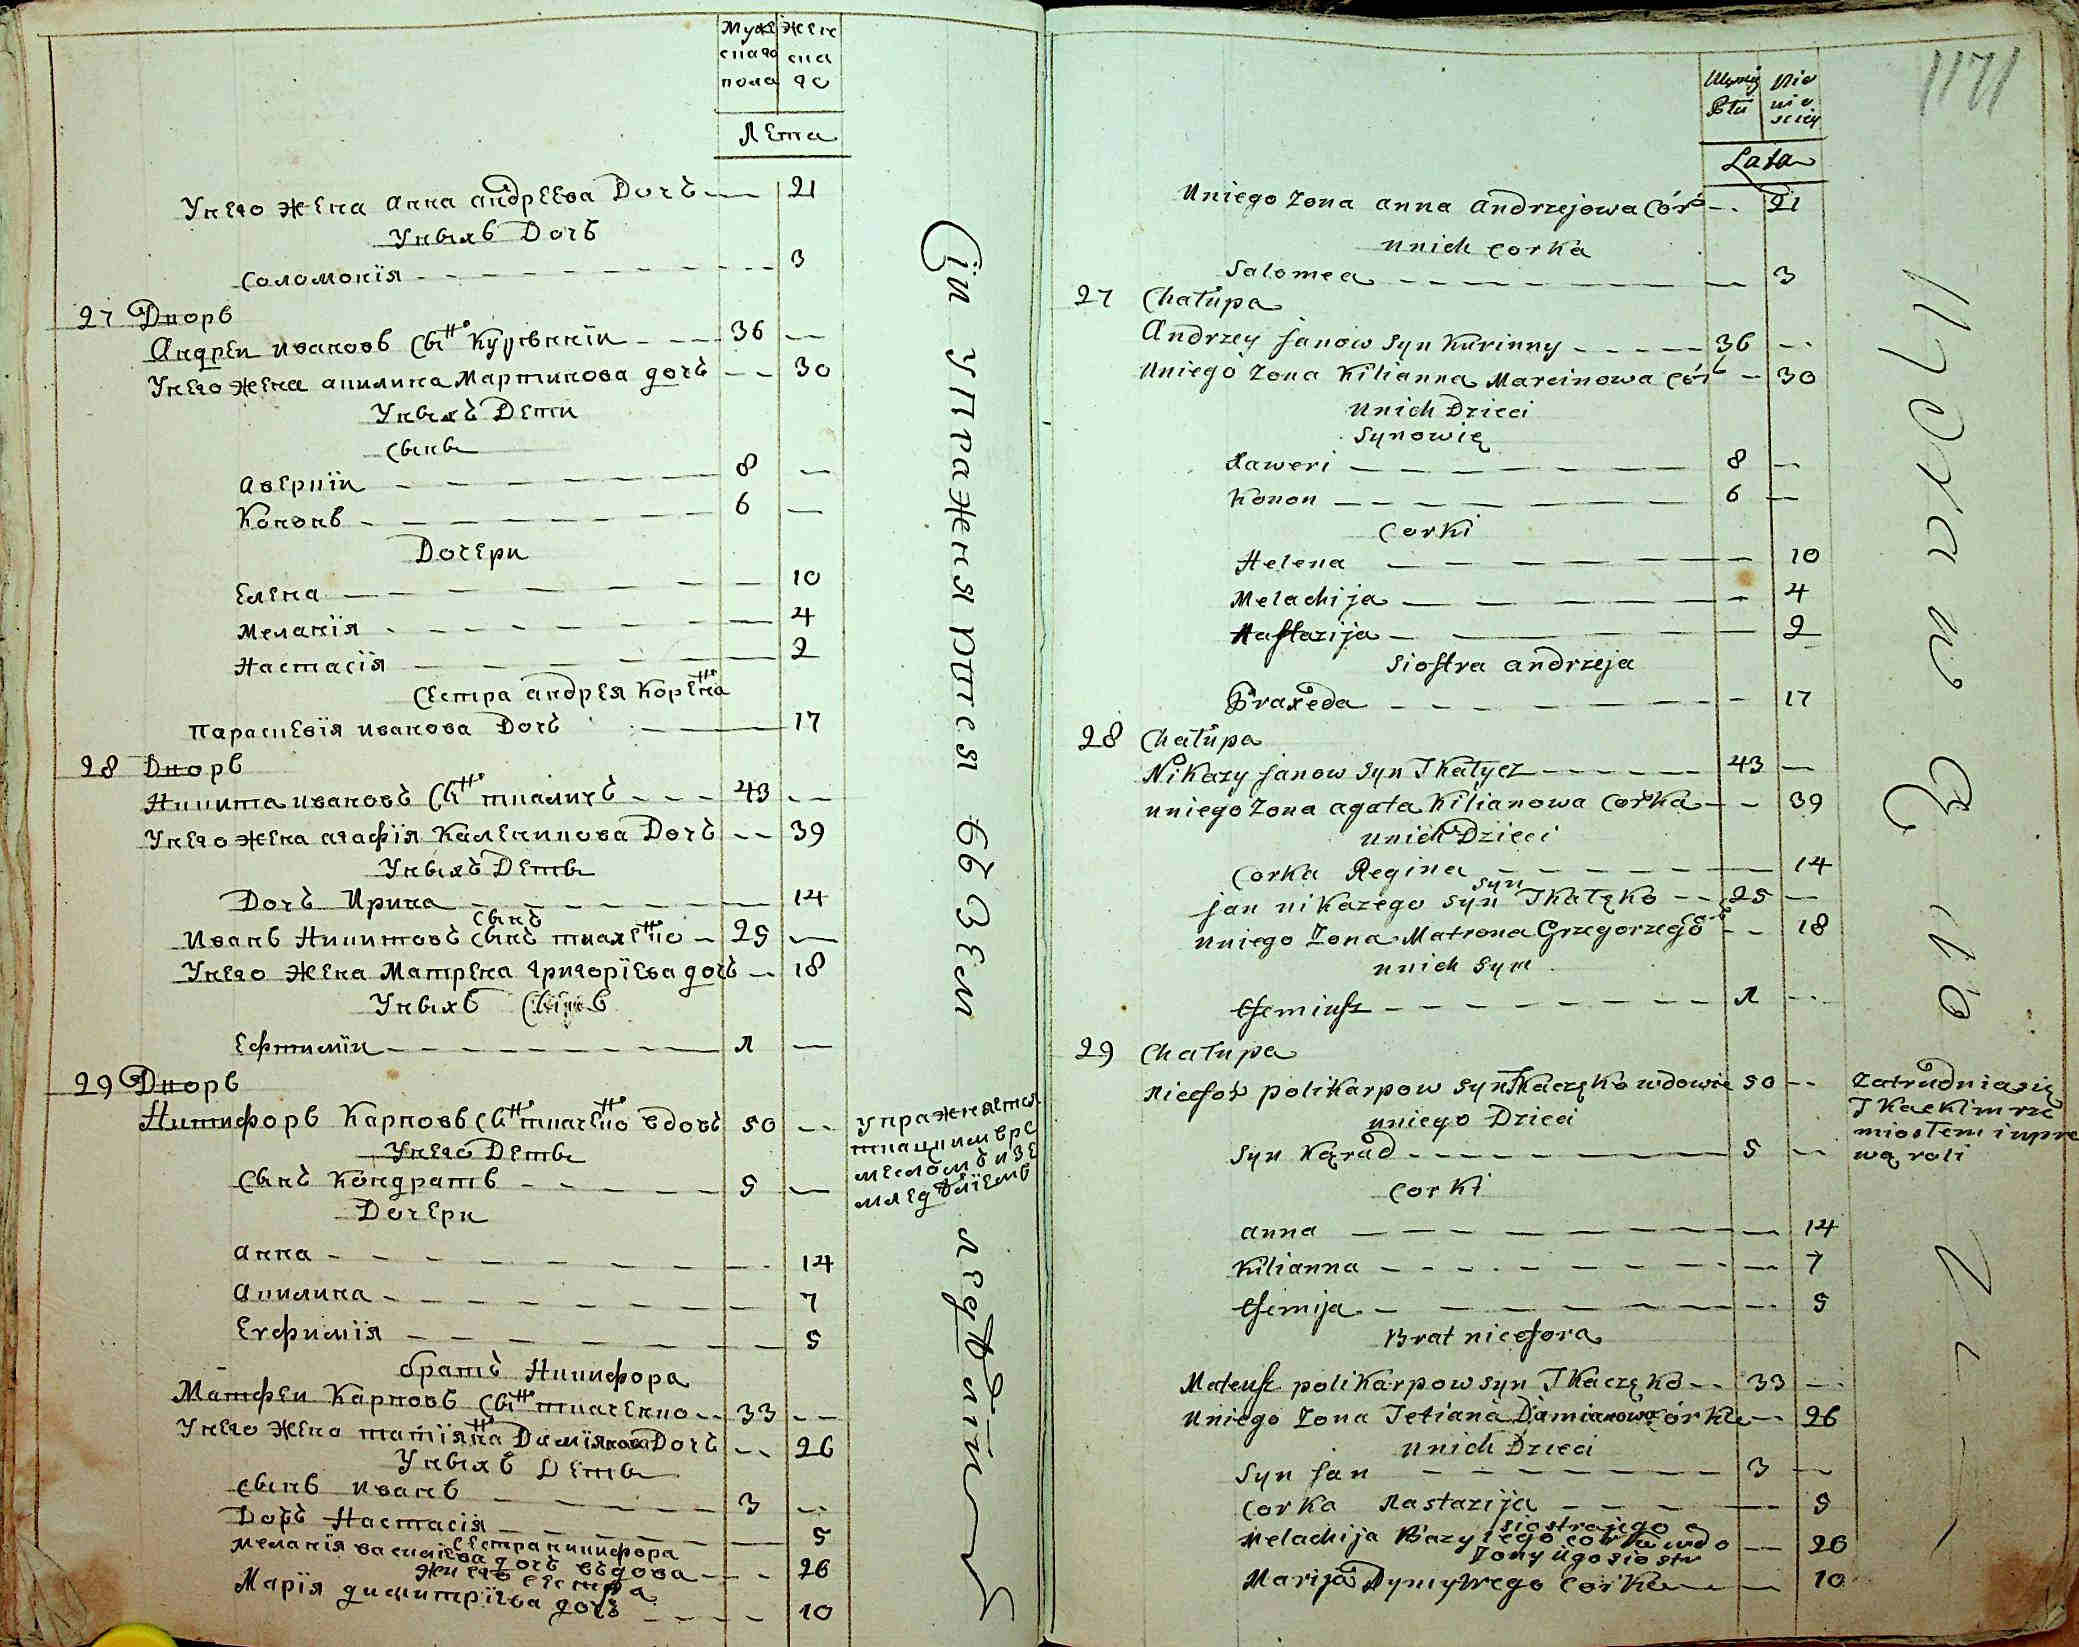 Мужеска пола
Женска го
Лета
У него жена Анна Андреева Дочь 21
У ныхъ Дочь
Соломонїя 3
27 Дворъ
Андреи Ивановъ Сы нъ 36
У него жена Акилина Мартинова дочь 30
У ныхъ Дети
Сыны
Аверкїи 8
Кононъ 6
Дочери
Елена 10
Меланїя 4
Настасїя 2
Сестра Андрея
Параскевїя Иванова Дочь 17
28 Дворъ
Никита Ивановъ Сы нъ Ткаличъ 43
У него жена Агафїя Дочь 39
У ныхъ Деты
Дочь Ирина 14
Иванъ Никитовъ Сынъ 25
У него жена Матрена Григорїева дочь 18
У ныхъ Сынъ
Ефтимїи л
29 Дворъ
Никифоръ Карповъ Сы нъ Ткаченко вдовъ 50
У него Деты
Сынъ Кондратъ 5
Дочери
Анна 14
Акилина 7
Евфимїя 5
братъ Никифора
Матфеи Карповъ Сы нъ Ткаченко 33
У него жена татїяна Дамїянова Дочь 26
У ныхъ Деты
Сынъ Иванъ 3
Дочь Настасїя 5
сестра Никифора
Меланїя Василиева дочь вдова 26
жены его сестра
Марїя димитрїева дочь 10
Упражняется
ткацкимъ ре
месломъ и зе
мледѣлїемъ
Сїи упражняются
земледѣлїемъ
1171
Lata
U niego Zona anna andrzejowa Cór 21
U nich corka
Salomea 3
27 Chałupa
Andrzey Janow Syn Kurinny 36
U niego Zona Kilianna Marcinowa Cór 30
U nich Dzieci
Synowie
Xaweri 8
Konon 6
Corki
Helena 10
Melachija 4
Nastazija 2
Siostra andrzeja
Praxeda 17
28 Chałupa
Nikazy Janow Syn Tkałycz 43
U niego Zona agata Kilianowa Corka 39
U nich Dzieci
Corka Regina 14
Jan nikazego Syn 25
U niego Zona Matrona Grzegorzego 18
U nich Syn
Efemiusz л
29 Chałupa
Nicefor polikarpow Syn Tkaczęko wdowie 50
U niego Dzieci
Syn 5
Corki
anna 14
Kilianna 7
Efimija 5
Brat nicefora
Mateusz polikarpow Syn Tkaczęko 33
U niego Zona Tetiana Damianowa Córka 26
U nich Dzieci
Syn Jan 3
Corka Nastazija 5
siostra jego
Melachija Bazylego corka wdo 26
Zony iigo siostr
Marija Corka 10
Zatrudnia się
Tkackim rze
miosłem i upra
wą roli